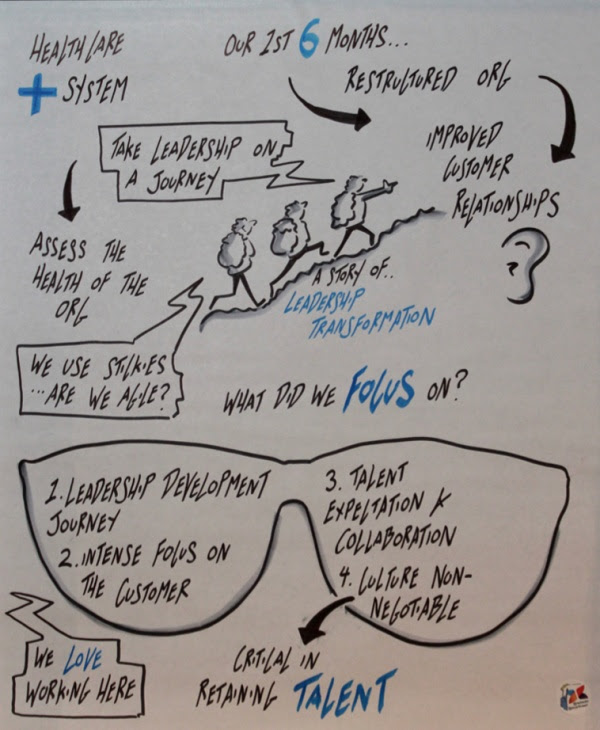 HEALTHCARE
+ SYSTEM
OUR 1ST 6 MONTHS...
RESTRUCTURED ORG
IMPROVED
CUSTOMER
RELATIONSHIPS
TAKE LEADERSHIP ON
A JOURNEY
ASSESS THE
HEALTH OF THE
ORG
A STORY OF..
LEADERSHIP
TRANSFORMATION
WE USE STICKIES
...ARE WE AGILE?
WHAT DID WE FOCUS ON?
1. LEADERSHIP DEVELOPMENT
JOURNEY
2. INTENSE FOCUS ON
THE CUSTOMER
3. TALENT
EXPECTATION &
COLLABORATION
4. CULTURE NON-
NEGOTIABLE
WE LOVE
WORKING HERE
CRITICAL IN
RETAINING TALENT